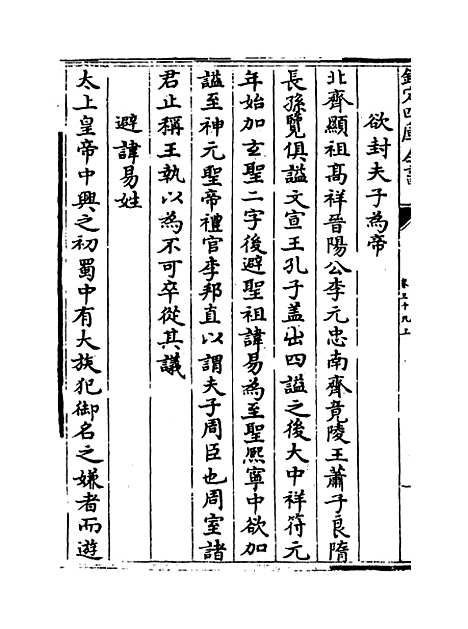 欽定四庫全書
卷三十九上
欲封夫子為帝
北齊顯祖髙祥晉陽公李元忠南齊竟陵王蕭子良隋
長孫覽俱諡文宣王孔子盖出四諡之後大中祥符元
年始加玄聖二字後避聖祖諱易為至聖熈寧中欲加
諡至神元聖帝禮官李邦直以謂夫子周臣也周室諸
君止稱王執以為不可卒從其議
避諱易姓
太上皇帝中興之初蜀中有大族犯御名之嫌者而遊